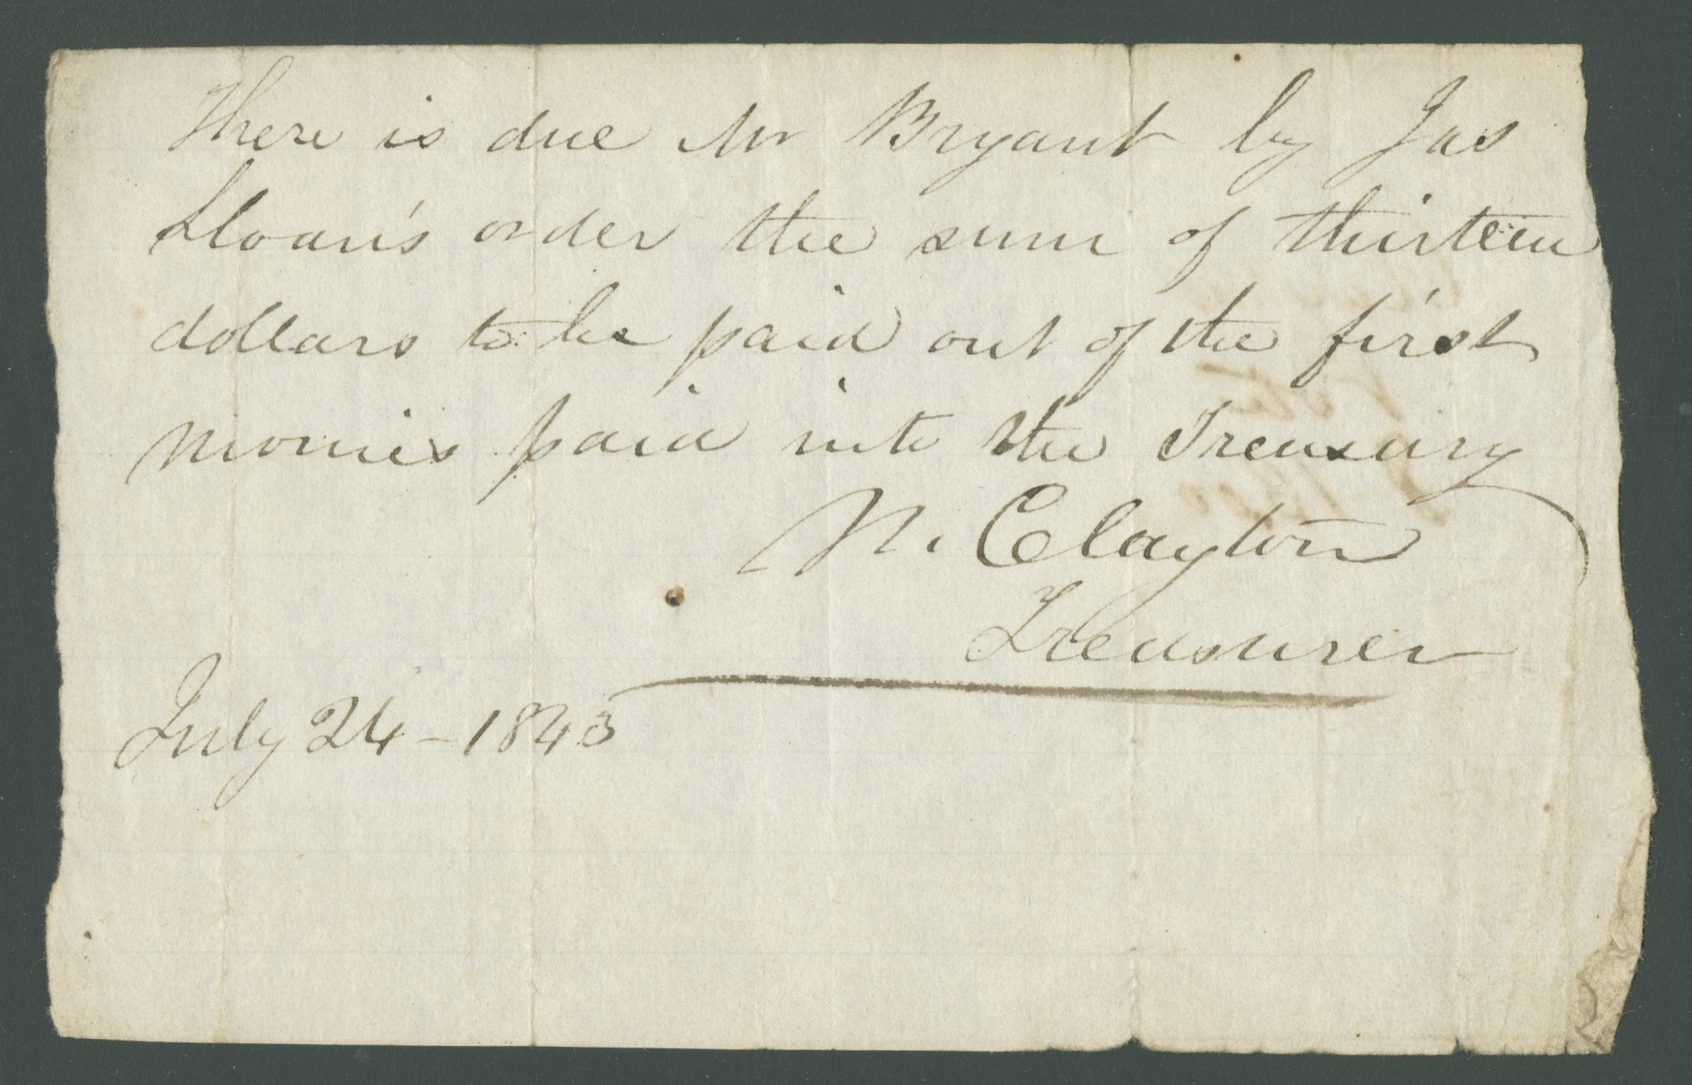 There is due Mr Bryant by Jas
Sloan's order the sum of thirteen
dollars to be paid out of the first
monies paid into the Treasury
N. Clayton
Treasurer
July 24 - 1843